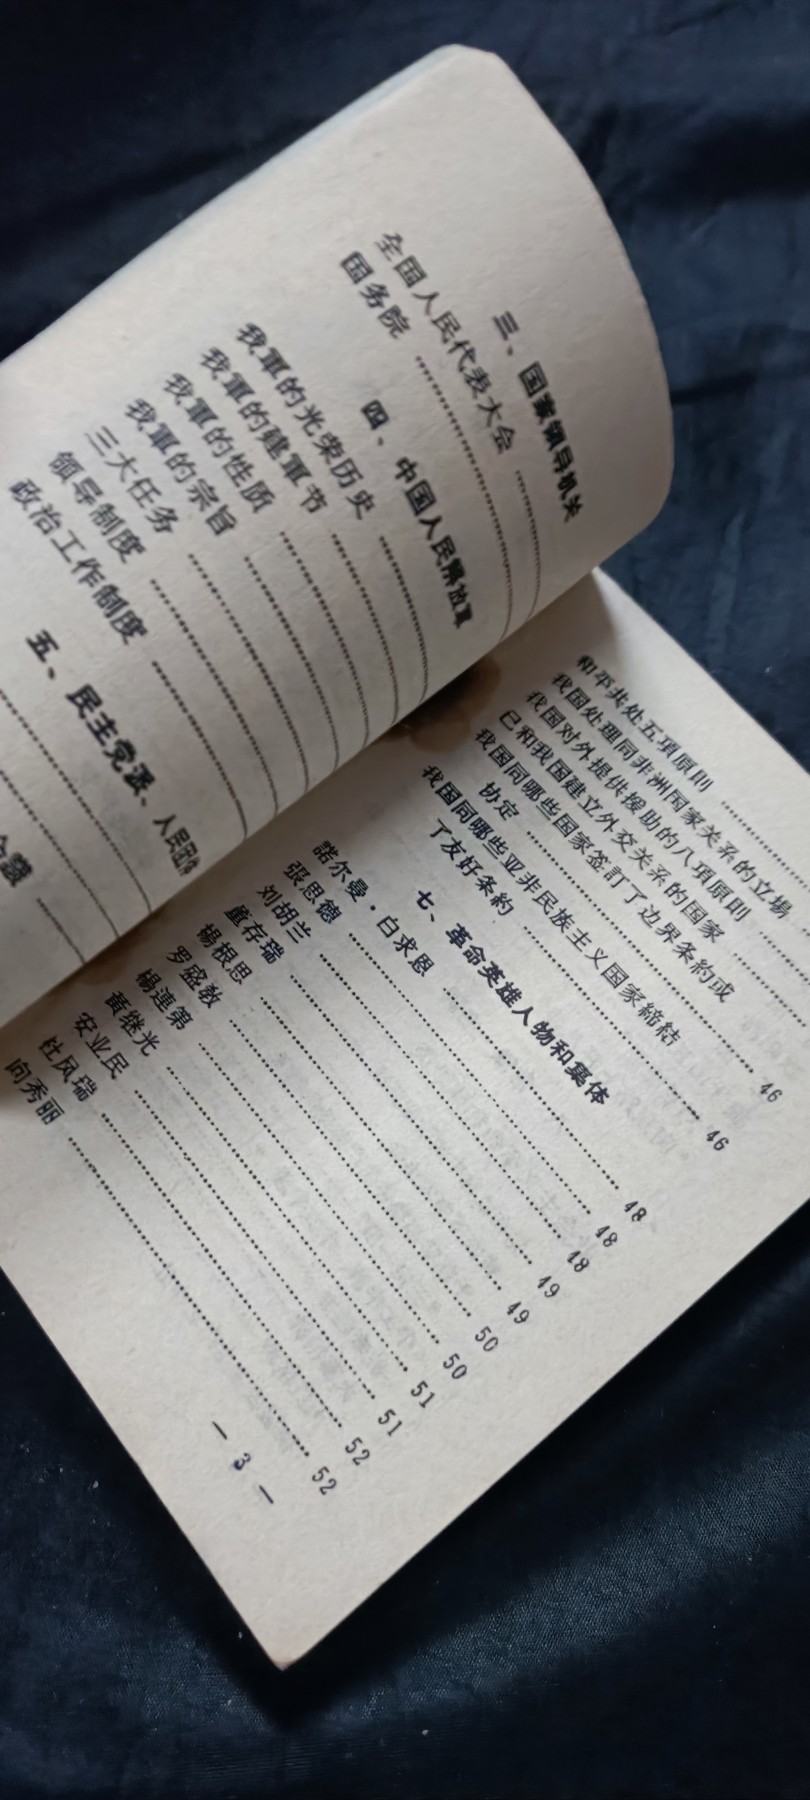 三、国家领导机关
全国人民代表大会
国务院
四、中国人民解放軍
我軍的光荣历史
我軍的建軍节
我軍的性质
我軍的宗旨
三大任务
领导制度
政治工作制度
五、民主党派、人民团体
和平共处五項原則
我国处理同非洲国家关系的立場
我国对外提供援助的八項原則
已和我国建立外交关系的国家
我国同哪些国家签訂了边界条約或
协定 46
我国同哪些亚非民族主义国家締結
了友好条約 46
七、革命英雄人物和集体
諾尔曼·白求恩 48
張思德 48
刘胡兰 48
董存瑞 49
楊根思 49
罗盛敎 50
楊連第 50
黃继光 51
安业民 51
杜凤瑞 52
向秀丽 52
— 3 —